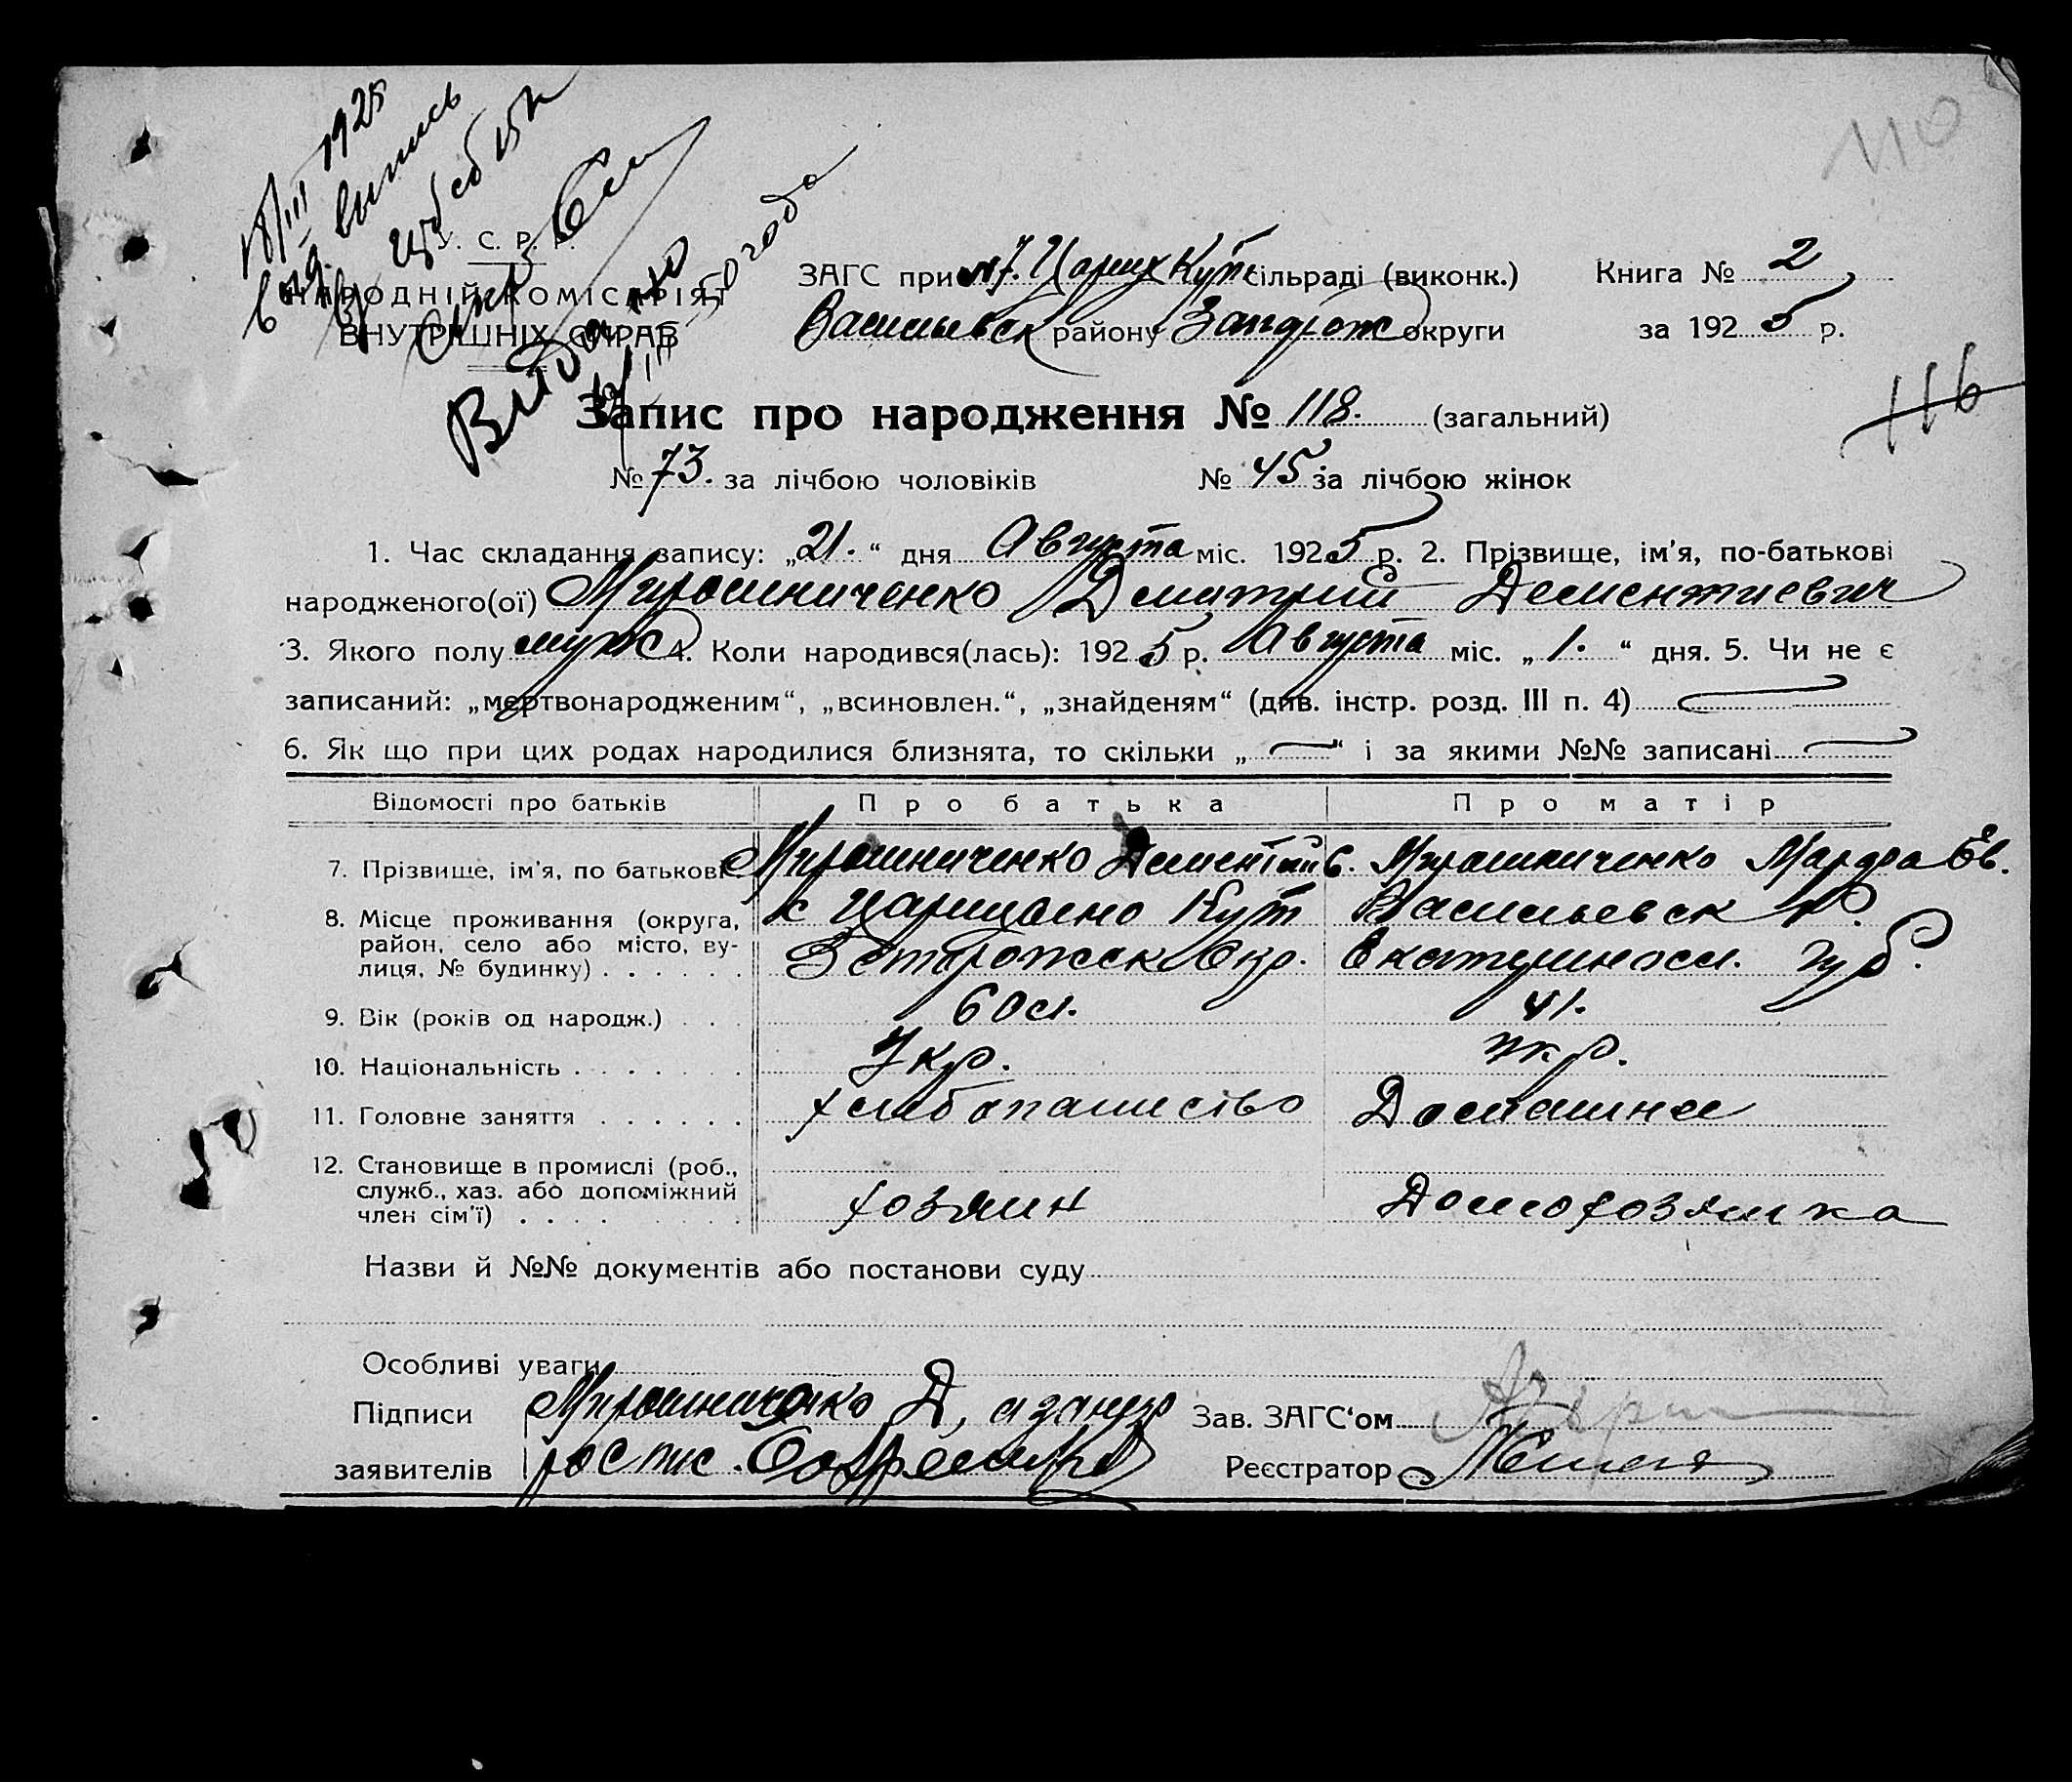 110
1925
выпись
У. С. Р. Р.
НАРОДНІЙ КОМІСАРІЯТ
ВНУТРІШНІХ СПРАВ
Видано
50 года
ЗАГС при Кут сільраді (виконк.) Книга № 2
Васильевск району Запорож округи за 1925 р.
116
Запис про народження № 118. (загальний)
№ 73. за лічбою чоловіків № 45 за лічбою жінок
1. Час складання запису: „21.“ дня Августа міс. 1925 р. 2. Прізвище, ім’я, по-батькові
народженого(ої) Мирошниченко Дмитрий Дементиевич
3. Якого полу муж 4. Коли народився(лась): 1925 р. Августа міс. „1.“ дня. 5. Чи не є
записаний: „мертвонародженим“, „всиновлен.“, „знайденям“ (див. інстр. розд. III п. 4)
6. Як що при цих родах народилися близнята, то скільки „ — “ і за якими №№ записані —
Відомості про батьків Про батька Про матір
7. Прізвище, ім’я, по батькові. Мирошниченко Дементий С. Мирошниченко Марфа Ев.
8. Місце проживання (округа, с Царицыно Кут Васильевск Р.
район, село або місто, ву-
лиця, № будинку) . . . . . . Окр. Екатериносл. губ.
9. Вік (років од народж.) . . . 60 л. 41.
10. Національність . . . . . . . Укр. Укр.
11. Головне заняття . . . . . . хлебопашество Домашнее
12. Становище в промислі (роб.,
служб., хаз. або допоміжний
член сім’ї) . . . . хозяин Домохозяика
Назви й №№ документів або постанови суду
Особливі уваги
Підписи Мирошниченко Д, а за него Зав. ЗАГС‘ом
заявителів роспис. Реєстратор